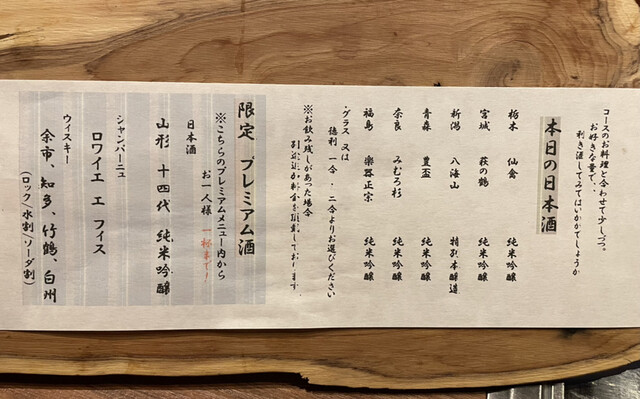 コースのお料理と合わせて少しづつ。
お好きな量で、、
利き酒してみてはいかがでしょうか
本日の日本酒
栃木 仙禽 純米吟醸
宮城 萩の鶴 純米吟醸
新潟 八海山 特別本醸造
青森 豊盃 純米吟醸
奈良 みむろ杉 純米吟醸
福島 楽器正宗 純米吟醸
・グラス 又は
徳利 一合・二合よりお選びください
※お飲み残しがあった場合
別途
限定 プレミアム酒
※こちらのプレミアムメニュー内から
お一人様 一杯まで!
日本酒
山形 十四代 純米吟醸
シャンパーニュ
ロワイエ エ フィス
ウィスキー
余市、知多、竹鶴、白州
(ロック/水割/ソーダ割)